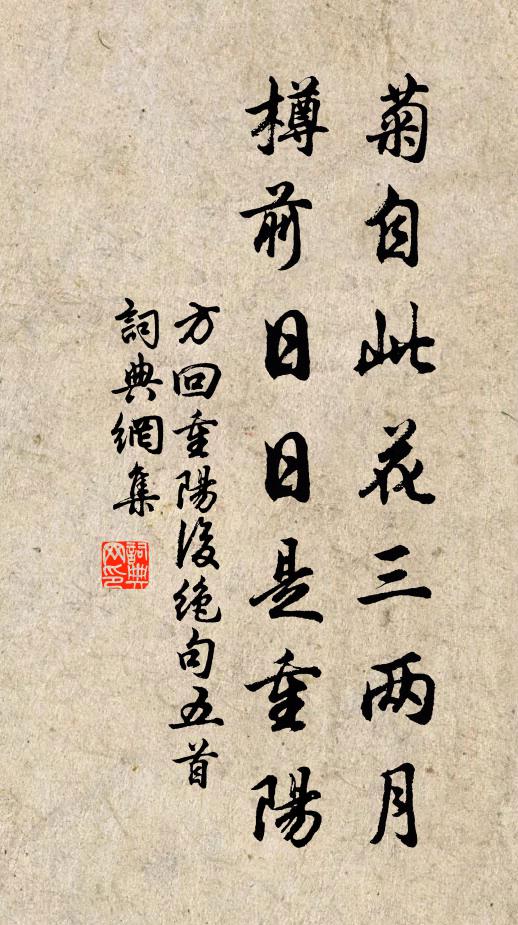 菊自此花三两月
樽前日日是重陽
方回重陽後絶句五首
詞典網集
詞典网印